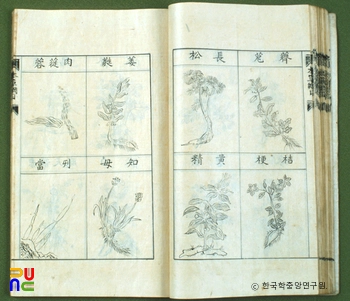 薺苨
長松
桔梗
黃精
肉蓯蓉
知母
列當
PUNC
© 한국학중앙연구원